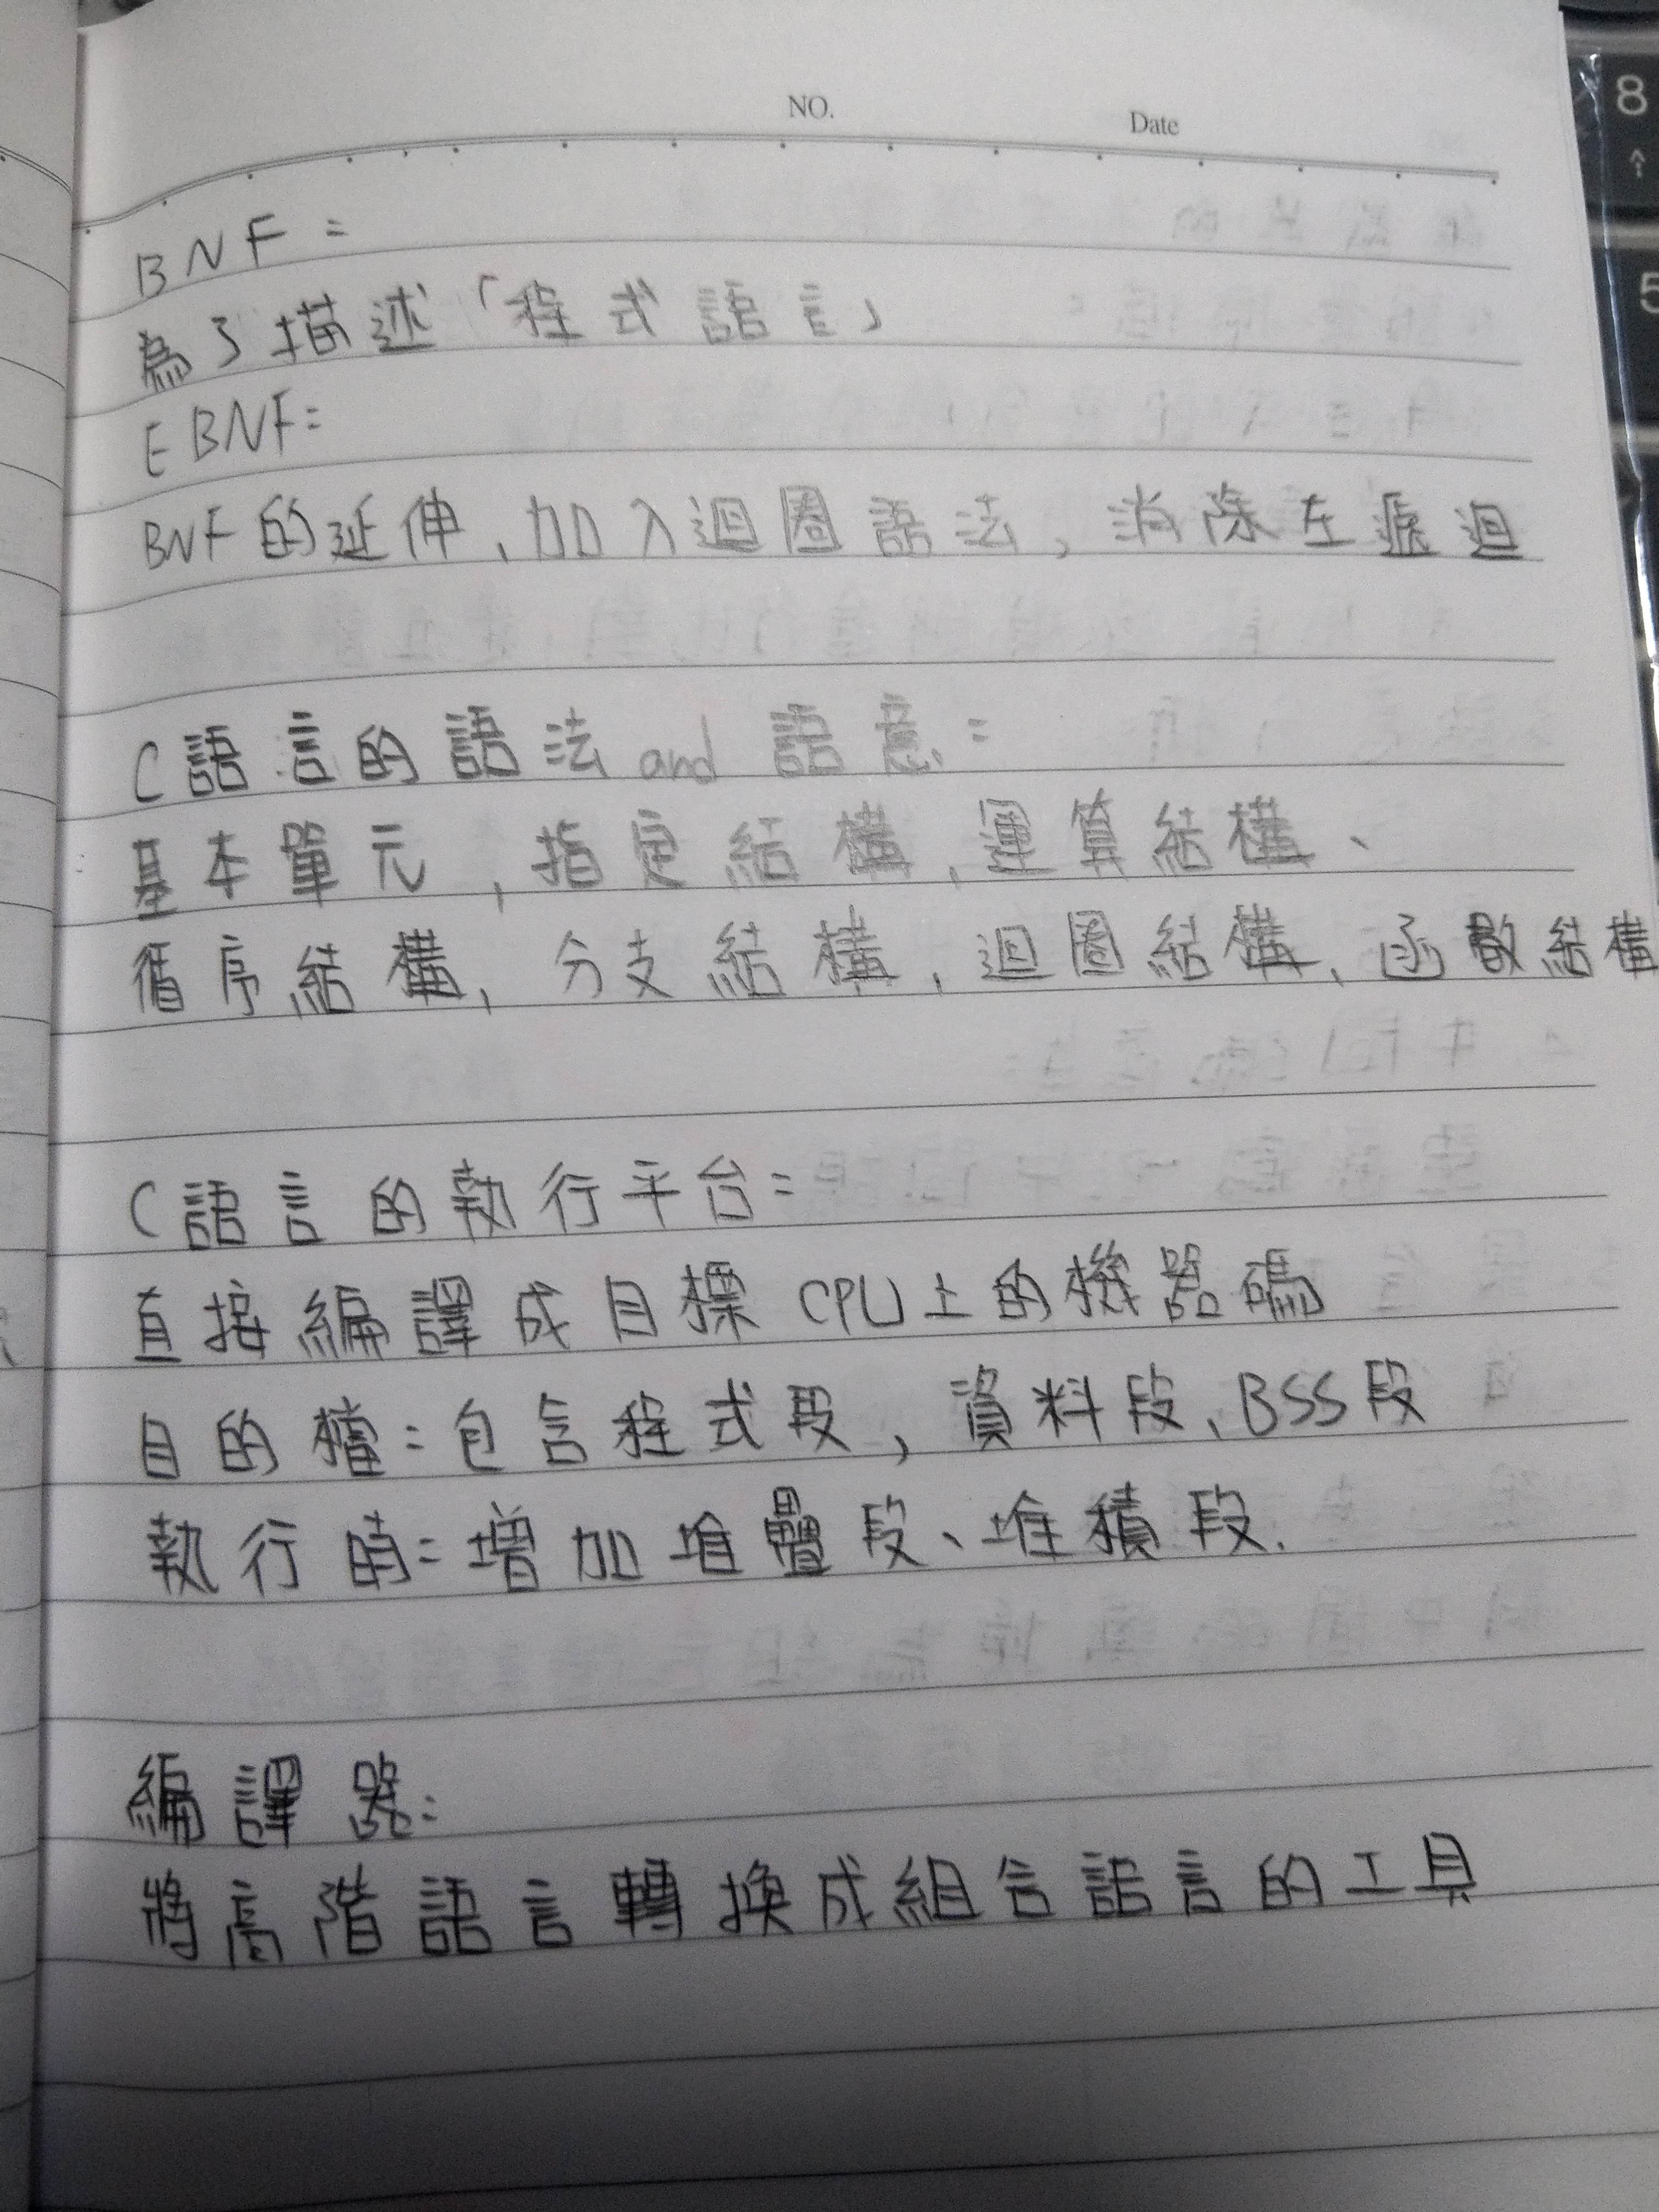 NO.
Date
8
↑
5
BNF:
為了描述「程式語言」
EBNF:
BNF的延伸、加入迴圈語法,消除左遞迴
C語言的語法and語意:
基本單元,指定結構、運算結構、
循序結構、分支結構、迴圈結構、函數結構
C語言的執行平台:
直接編譯成目標CPU上的機器碼
目的檔:包含程式段,資料段、BSS段
執行時:增加堆疊段、堆積段.
編譯器:
將高階語言轉換成組合語言的工具